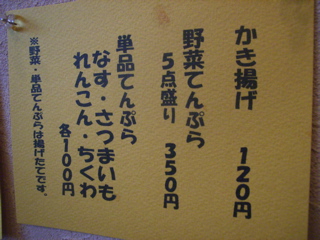 かき揚げ 120円
野菜てんぷら
5点盛り 350円
単品てんぷら
なす・さつまいも
れんこん・ちくわ
各100円
※野菜・単品てんぷらは揚げたてです。